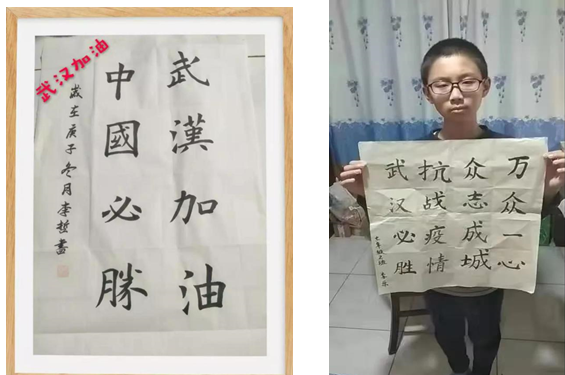 武汉加油
武漢加油
中國必勝
歲在庚子冬月李哲書
万众一心
众志成城
抗战疫情
武汉必胜